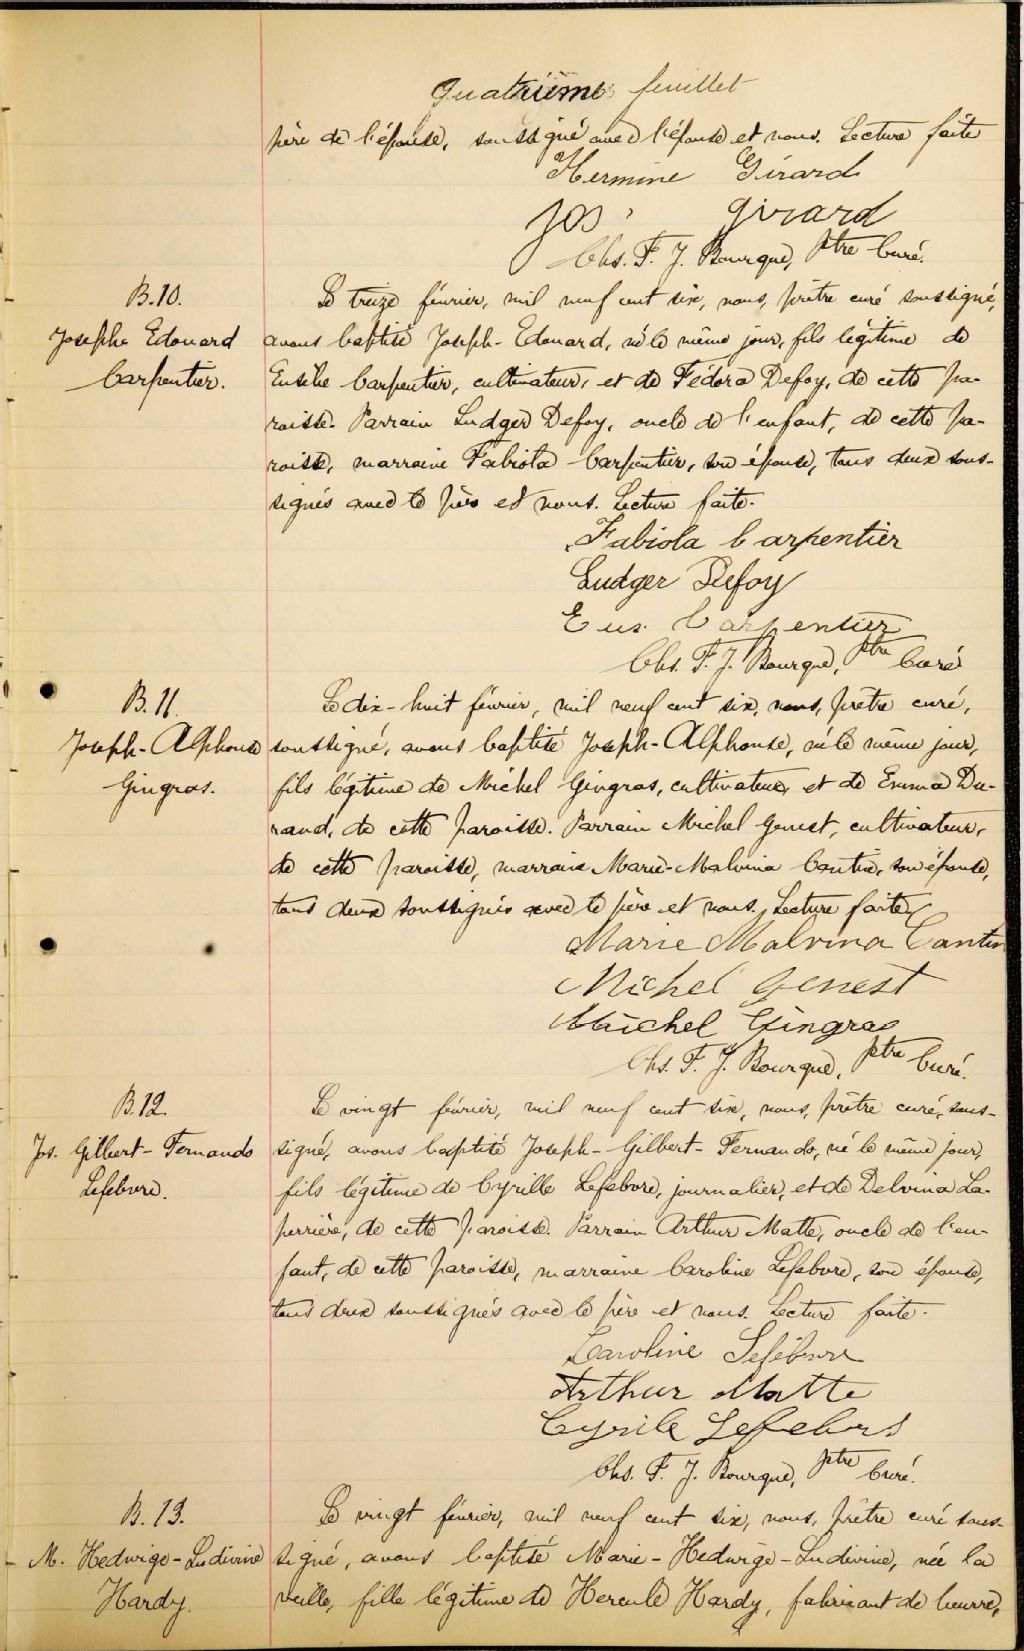 Quatrième feuillet
père de l'épouse, soussigné avec l'épouse et nous. Lecture faite
Hermine Girard
Jos Girard
Chs. F. J. Bourque, Ptre Curé.
B.10.
Joseph Edouard
Carpentier.
Le treize février, mil neuf cent six, nous, prêtre curé soussigné,
avons baptisé Joseph-Edouard, né le même jour, fils légitime de
Eusèbe Carpentier, cultivateur, et de Fédora Defoy, de cette pa-
roisse. Parrain Ludger Defoy, oncle de l'enfant, de cette pa-
roisse, marraine Fabiola Carpentier, son épouse, tous deux sous-
signés avec le père et nous. Lecture faite.
Fabiola Carpentier
Ludger Defoy
Eus. Carpentier
Chs. F. J. Bourque, Ptre Curé
B.11.
Joseph-Alphonse
Gingras.
Le dix-huit février, mil neuf cent six, nous, prêtre curé,
soussigné, avons baptisé Joseph-Alphonse, né le même jour,
fils légitime de Michel Gingras, cultivateur, et de Emma Du-
rand, de cette paroisse. Parrain Michel Genest, cultivateur,
de cette paroisse, marraine Marie-Malvina Cantin, son épouse,
tous deux soussignés avec le père et nous. Lecture faite
Marie Malvina Cantin
Michel Genest
Michel Gingras
Chs. F. J. Bourque, Ptre Curé.
B.12.
Jos. Gilbert-Fernando
Lefebvre.
Le vingt février, mil neuf cent six, nous, prêtre curé, sous-
signé, avons baptisé Joseph-Gilbert-Fernando, né le même jour,
fils légitime de Cyrille Lefebvre, journalier, et de Delvina La-
perrière, de cette paroisse. Parrain Arthur Matte, oncle de l'en-
fant, de cette paroisse, marraine Caroline Lefebvre, son épouse,
tous deux soussignés avec le père et nous. Lecture faite.
Caroline Lefebvre
Arthur Matte
Cyrile Lefebvre
Chs. F. J. Bourque, Ptre Curé.
B.13.
M. Hedwige-Ludivine
Hardy.
Le vingt février, mil neuf cent six, nous, prêtre curé sous-
signé, avons baptisé Marie-Hedwige-Ludivine, née la
veille, fille légitime de Hercule Hardy, fabricant de beurre,